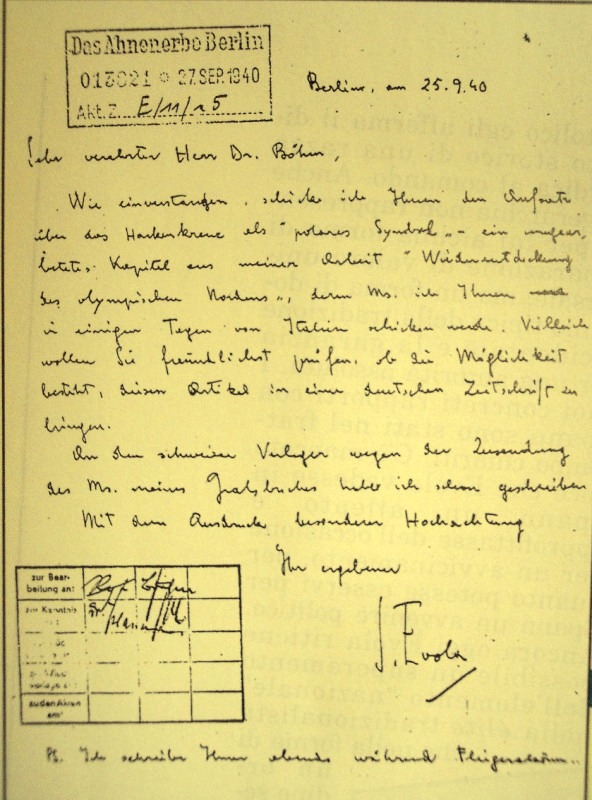 Das Ahnenerbe Berlin
013821 ✡ 27.SEP.1940
Akt.Z. E/11/25
Berlin, am 25.9.40
Sehr verehrter Herr Dr. Böhm,
Wie einverstanden, schicke ich Ihnen den Aufsatz
über das Hackenkreuz als "polares Symbol" - ein umgear-
beitetes Kapitel aus meiner Arbeit "Wiederentdeckung
des olympischen Nordens", deren Ms. ich Ihnen
in einigen Tagen von Italien schicken werde. Vielleich
wollen Sie freundlichst prüfen, ob die Möglichkeit
besteht, diesen Artikel in einer deutschen Zeitschrift zu
bringen.
An den schweizer Verleger wegen der Zusendung
des Ms. meines Gralsbuches habe ich schon geschrieben
Mit dem Ausdruck besonderer Hochachtung
Ihr ergebener
J. Evola
zur Bear-
beitung an:
zur Kenntnis
zu den Akten
am
PS. Ich schreibe Ihnen abends während Fliegeralarm..